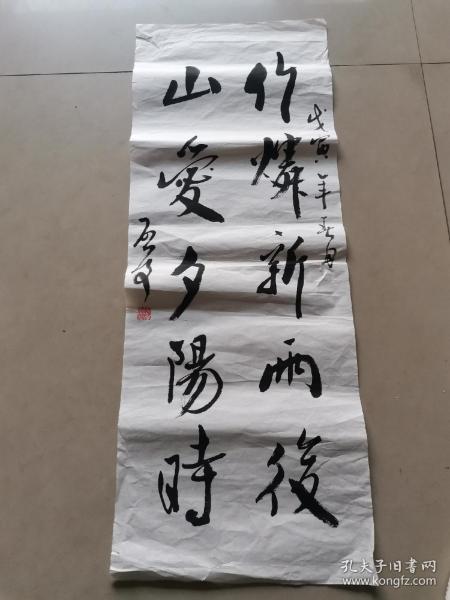 戊寅年春月
竹憐新雨後
山愛夕陽時
孔夫子旧书网
www.kongfz.com